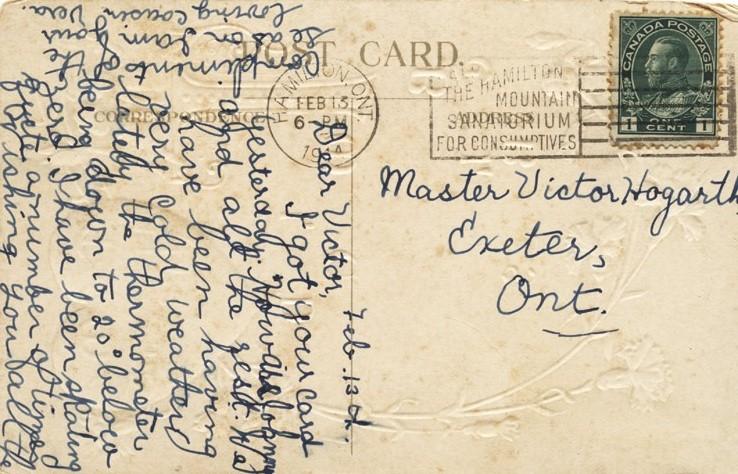 POST CARD.
CORRESPONDENCE
ADDRESS
HAMILTON, ONT.
FEB 13
6 - PM
THE HAMILTON
MOUNTAIN
SANATORIUM
FOR CONSUMPTIVES
CANADA POSTAGE
1 CENT 1
Master Victor Hogarth
Exeter,
Ont.
Feb. 13th.
Dear Victor,
I got your card
yesterday. How is Johnny
and all the rest. We
have been having
very cold weather
lately the thermometer
being down to 20° below
zero. I have been skating
quite a number of times
Wishing you all the
compliments of the
season I am your
loving cousin
Vera.